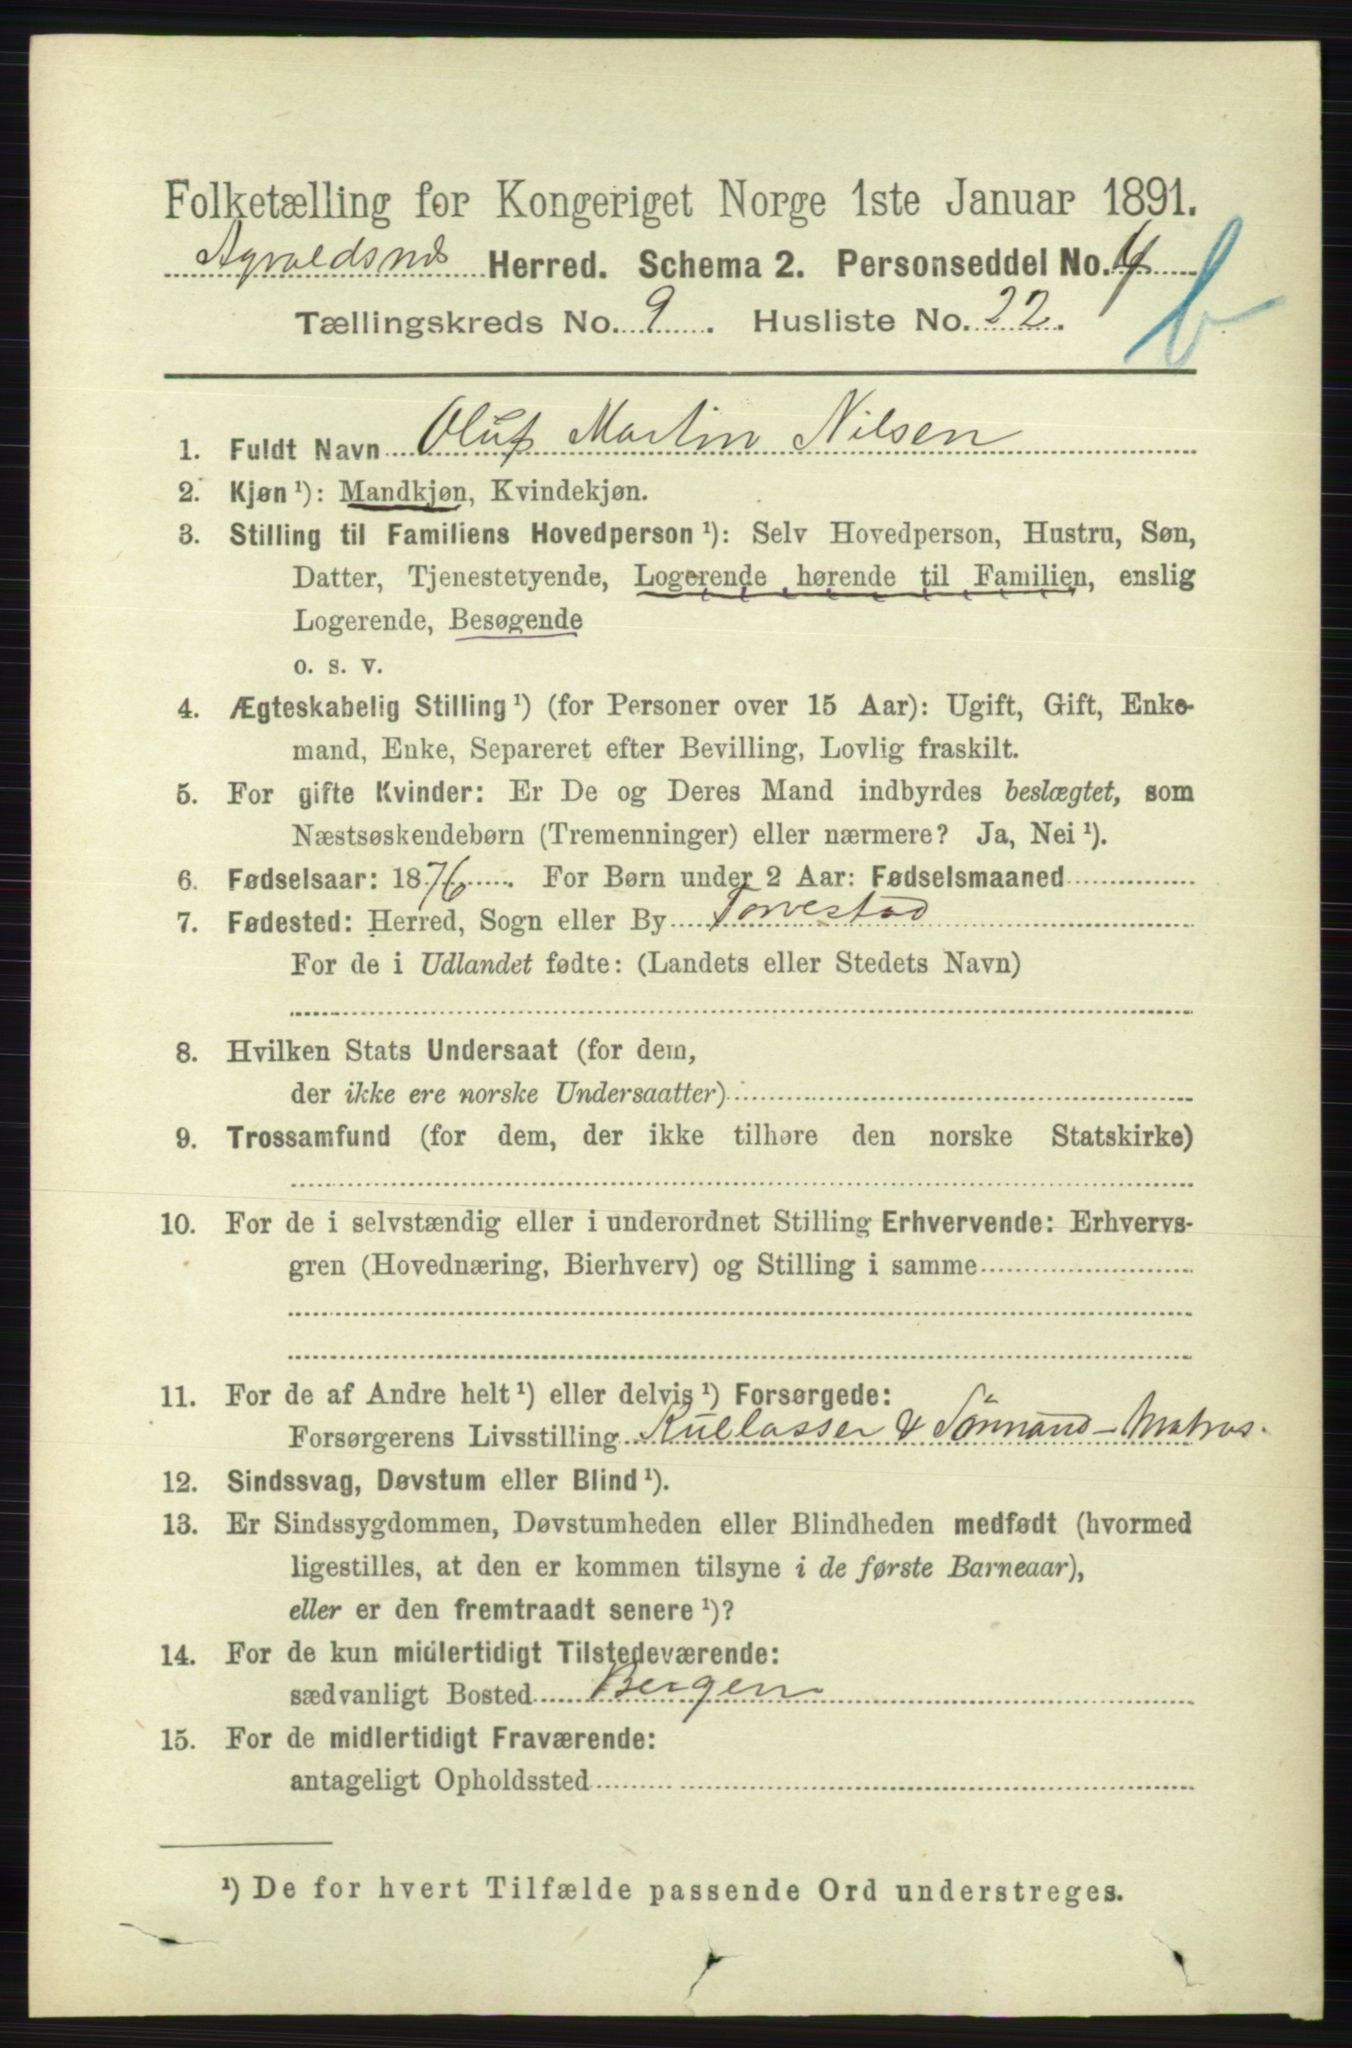 Folketælling for Kongeriget Norge 1ste Januar 1891.
Herred. Schema 2. Personseddel No. 4 b
Tællingskreds No. 9. Husliste No. 22.
1. Fuldt Navn Oluf Martin Nilsen
2. Kjøn ¹): Mandkjøn, Kvindekjøn.
3. Stilling til Familiens Hovedperson ¹): Selv Hovedperson, Hustru, Søn,
Datter, Tjenestetyende, Logerende hørende til Familien, enslig
Logerende, Besøgende
o. s. v.
4. Ægteskabelig Stilling ¹) (for Personer over 15 Aar): Ugift, Gift, Enke-
mand, Enke, Separeret efter Bevilling, Lovlig fraskilt.
5. For gifte Kvinder: Er De og Deres Mand indbyrdes beslægtet, som
Næstsøskendebørn (Tremenninger) eller nærmere? Ja, Nei ¹).
6. Fødselsaar: 1876. For Børn under 2 Aar: Fødselsmaaned
7. Fødested: Herred, Sogn eller By Torvestad
For de i Udlandet fødte: (Landets eller Stedets Navn)
8. Hvilken Stats Undersaat (for dem,
der ikke ere norske Undersaatter)
9. Trossamfund (for dem, der ikke tilhøre den norske Statskirke)
10. For de i selvstændig eller i underordnet Stilling Erhvervende: Erhvervs-
gren (Hovednæring, Bierhverv) og Stilling i samme
11. For de af Andre helt ¹) eller delvis ¹) Forsørgede:
Forsørgerens Livsstilling Kullasser & Sömand - Matros.
12. Sindssvag, Døvstum eller Blind ¹).
13. Er Sindssygdommen, Døvstumheden eller Blindheden medfødt (hvormed
ligestilles, at den er kommen tilsyne i de første Barneaar),
eller er den fremtraadt senere ¹)?
14. For de kun midlertidigt Tilstedeværende:
sædvanligt Bosted Bergen
15. For de midlertidigt Fraværende:
antageligt Opholdssted
¹) De for hvert Tilfælde passende Ord understreges.